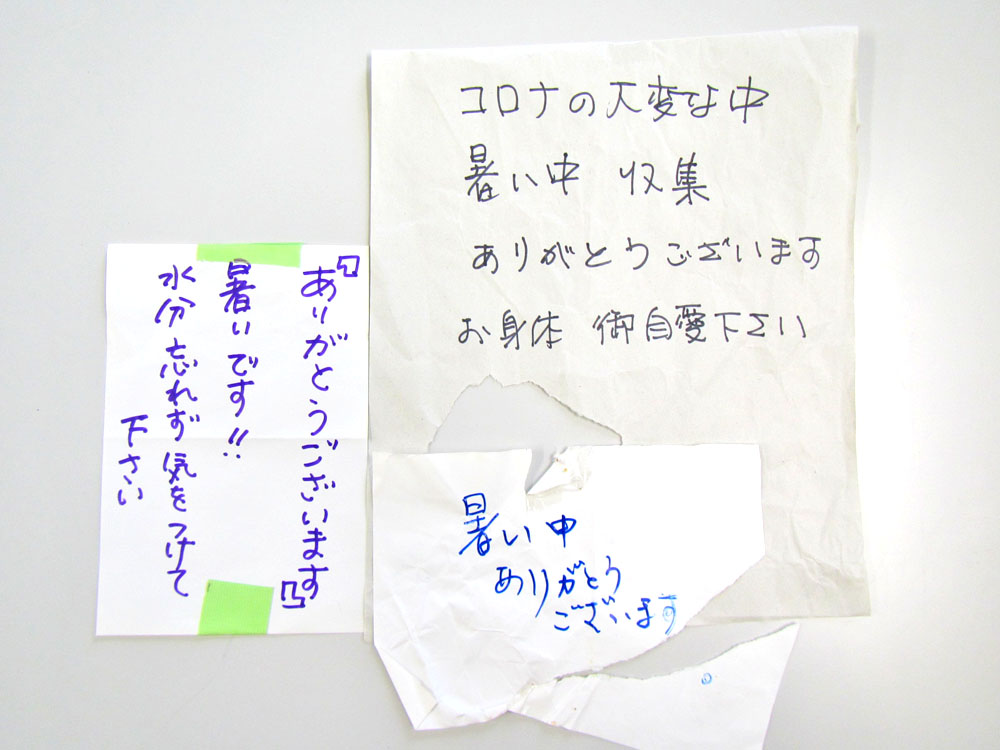 コロナの大変な中
暑い中 収集
ありがとうございます
お身体 御自愛下さい
『ありがとうございます』
暑いです!!
水分忘れず気をつけて
下さい
暑い中
ありがとう
ございます